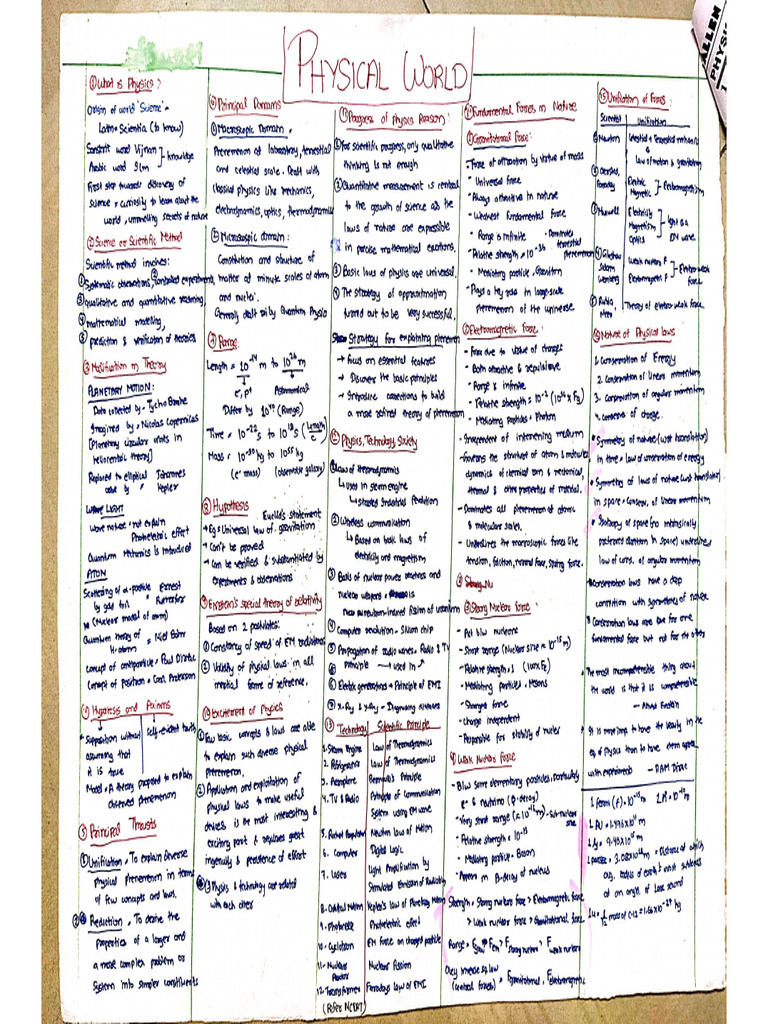 PHYSICAL WORLD
ALLEN
PHYSI
① What is Physics?
Origin of world 'Science' -
Latin - Scientia (to know)
Sanskrit word Vijnan
Arabic word Ilm
} knowledge
First step towards discovery of
science = curiosity to learn about the
world, unravelling secrets of nature
② Science or Scientific Method
Scientific method involves:
① Systematic observations, ② controlled experiments,
③ qualitative and quantitative reasoning,
④ mathematical modelling,
⑤ prediction & verification of theories
③ Modification in Theory
PLANETARY MOTION:
Data collected by - Tycho Brahe
Imagined by - Nicolas Copernicus
[Planetary circular orbits in
heliocentric theory]
Replaced to elliptical Johannes
by Kepler
WAVE LIGHT
Wave nature - not explain
Photoelectric effect
Quantum Mechanics is introduced
ATOM
Scattering of α-particle - Ernest
by gold foil Rutherford
(Nuclear model of atom)
Quantum theory of
H-atom = Niel Bohr
Concept of antiparticle = Paul Dirac
Concept of Positron = Carl Anderson
Hypothesis and Axioms
Supposition without
assuming that
it is true
Self-evident truth
Model - A theory proposed to explain
observed phenomenon
⑤ Principal Thrusts
① Unification, To explain diverse
physical phenomenon in terms
of few concepts and laws.
② Reduction, To derive the
properties of a larger and
a more complex problem or
system into simpler constituents
⑥ Principal Domains
① Macroscopic Domain,
Phenomenon at laboratory, terrestrial
and celestial scale. Dealt with
classical physics like mechanics,
electrodynamics, optics, thermodynamics
② Microscopic domain:
Constitution and structure of
matter at minute scales of atom
and nuclei.
Generally dealt with by Quantum Physics
⑦ Range:
Length = 10⁻¹⁴ m to 10²⁶ m
e, p⁺ Astronomical
Differ by 10⁴⁰ (Range)
Time = 10⁻²² s to 10¹⁸ s (Length/c)
Mass = 10⁻³⁰ kg to 10⁵⁵ kg
(e⁻ mass) (observable galaxy)
⑧ Hypothesis
Euclid's statement
→ Eg = Universal law of gravitation
→ Can't be proved
→ Can be verified & substantiated by
experiments & observations
⑨ Einstein's special theory of relativity
Based on 2 postulates:
① Constancy of speed of EM radiations
② Validity of physical laws in all
inertial frame of reference.
⑩ Excitement of Physics
① Few basic concepts & laws are able
to explain such diverse physical
phenomenon.
② Application and exploitation of
physical laws to make useful
devices is the most interesting &
exciting part & requires great
ingenuity & persistence of effort
③ Physics & technology are related
with each other
⑪ Progress of Physics Reason:
① For scientific progress, only qualitative
thinking is not enough
② Quantitative measurement is central
to the growth of science as the
laws of nature are expressible
in precise mathematical equations.
③ Basic laws of physics are universal.
④ The strategy of approximation
turned out to be very successful.
Strategy for explaining phenomenon
→ Focus on essential features
→ Discover the basic principles
→ Introduce corrections to build
a more refined theory of phenomenon
⑫ Physics, Technology, Society
① Laws of thermodynamics
↳ Uses in steam engine
↳ Started Industrial Revolution
② Wireless communication
↳ Based on basic laws of
electricity and magnetism
③ Basis of nuclear power reactors and
nuclear weapons =
neutron-induced fission of uranium
④ Computer revolution - Silicon chip
⑤ Propagation of radio waves - Radio & TV
Principle - used in
⑥ Electric generators → Principle of EMI
X-Ray & γ-Ray - Diagnosing diseases
⑬ Technology Scientific Principle
1. Steam Engine Law of Thermodynamics
2. Refrigerator Law of Thermodynamics
3. Aeroplane Bernoulli's Principle
4. TV & Radio Principle of Communication
System using EM wave
5. Rocket Propulsion Newton Law of Motion
6. Computer Digital Logic
7. Lasers Light Amplification by
Stimulated Emission of Radiation
8. Orbital Motion Kepler's law of Planetary Motion
9. Photocell Photoelectric effect
10. Cyclotron EM force on charged particle
11. Nuclear Reactor Nuclear Fission
12. Transformer Faraday's Law of EMI
(Refer NCERT)
Fundamental Forces in Nature
① Gravitational Force:
- Force of attraction by virtue of mass
- Universal force
- Always attractive in nature
- Weakest fundamental force
- Range is infinite
- Dominates terrestrial phenomenon
- Relative strength = 10⁻³⁶
- Mediating particle = Graviton
- Plays a key role in large-scale
phenomenon of the universe
② Electromagnetic Force:
- Force due to virtue of charges
- Both attractive & repulsive
- Range = infinite
- Relative strength = 10⁻² (10³⁶ × Fg)
- Mediating particle = Photon
- Independent of intervening medium
- Governs the structure of atoms & molecules
dynamics of chemical rxn & mechanical,
thermal & other properties of material.
- Dominates all phenomenon at atomic
& molecular scales.
- Underlines the macroscopic forces like
tension, friction, normal force, spring force.
③ Strong Nuclear Force:
- Act b/w nucleons
- Short range (Nuclear size ≈ 10⁻¹⁵ m)
- Relative strength = 1 (100 × FE)
- Mediating particles = Mesons
- Strongest force
- Charge independent
- Responsible for stability of nuclei
④ Weak Nuclear Force
- B/w some elementary particles, particularly
e⁻ & neutrino (β-decay)
- Very short range (≈ 10⁻¹⁶ m) - Sub-nuclear size
- Relative strength = 10⁻¹³
- Mediating particle = Boson
- Appear in β-decay of nucleus
Strength = Strong nuclear force > Electromagnetic force
> Weak nuclear force > Gravitational force
Obey inverse sq law
(central forces) = F gravitational, F electromagnetic
⑮ Unification of Forces:
Scientist Unification
① Newton Celestial & Terrestrial motions
& Law of motion & gravitation
② Oersted, Faraday Electric Magnetic } - Electromagnetism
③ Maxwell Electricity Magnetism Optics } light is a EM wave
④ Glashow Salam Weinberg Weak nuclear F Electromagnetic F } - Electroweak force
⑤ Rubia Theory of electroweak force
⑯ Nature of Physical laws
1. Conservation of Energy
2. Conservation of linear momentum
3. Conservation of angular momentum
4. Conserve of charge.
* Symmetry of nature (wrt translation)
in time = law of conservation of energy
* Symmetry of laws of nature (wrt translation)
in space = Conserv. of linear momentum
* Isotropy of space (no intrinsically
preferred direction in space) underlies
law of cons. of angular momentum
* Conservation laws have a deep
connection with symmetries of nature
* Conservation laws are for one
fundamental force but not for the others
- The most incomprehensible thing about
the world is that it is comprehensible
- Albert Einstein
* It is more imp. to have the beauty in the
eq. of Physics than to have them agree
with experiments - P.A.M Dirac
1 fermi (f) = 10⁻¹⁵ m 1 Å = 10⁻¹⁰ m
1 AU = 1.496 × 10¹¹ m
1 ly = 9.46 × 10¹⁵ m
1 parsec = 3.08 × 10¹⁶ m = Distance at which
avg. radius of earth's orbit subtends
at an angle of 1 arc second
1 u = 1/12 mass of C-12 = 1.66 × 10⁻²⁷ kg